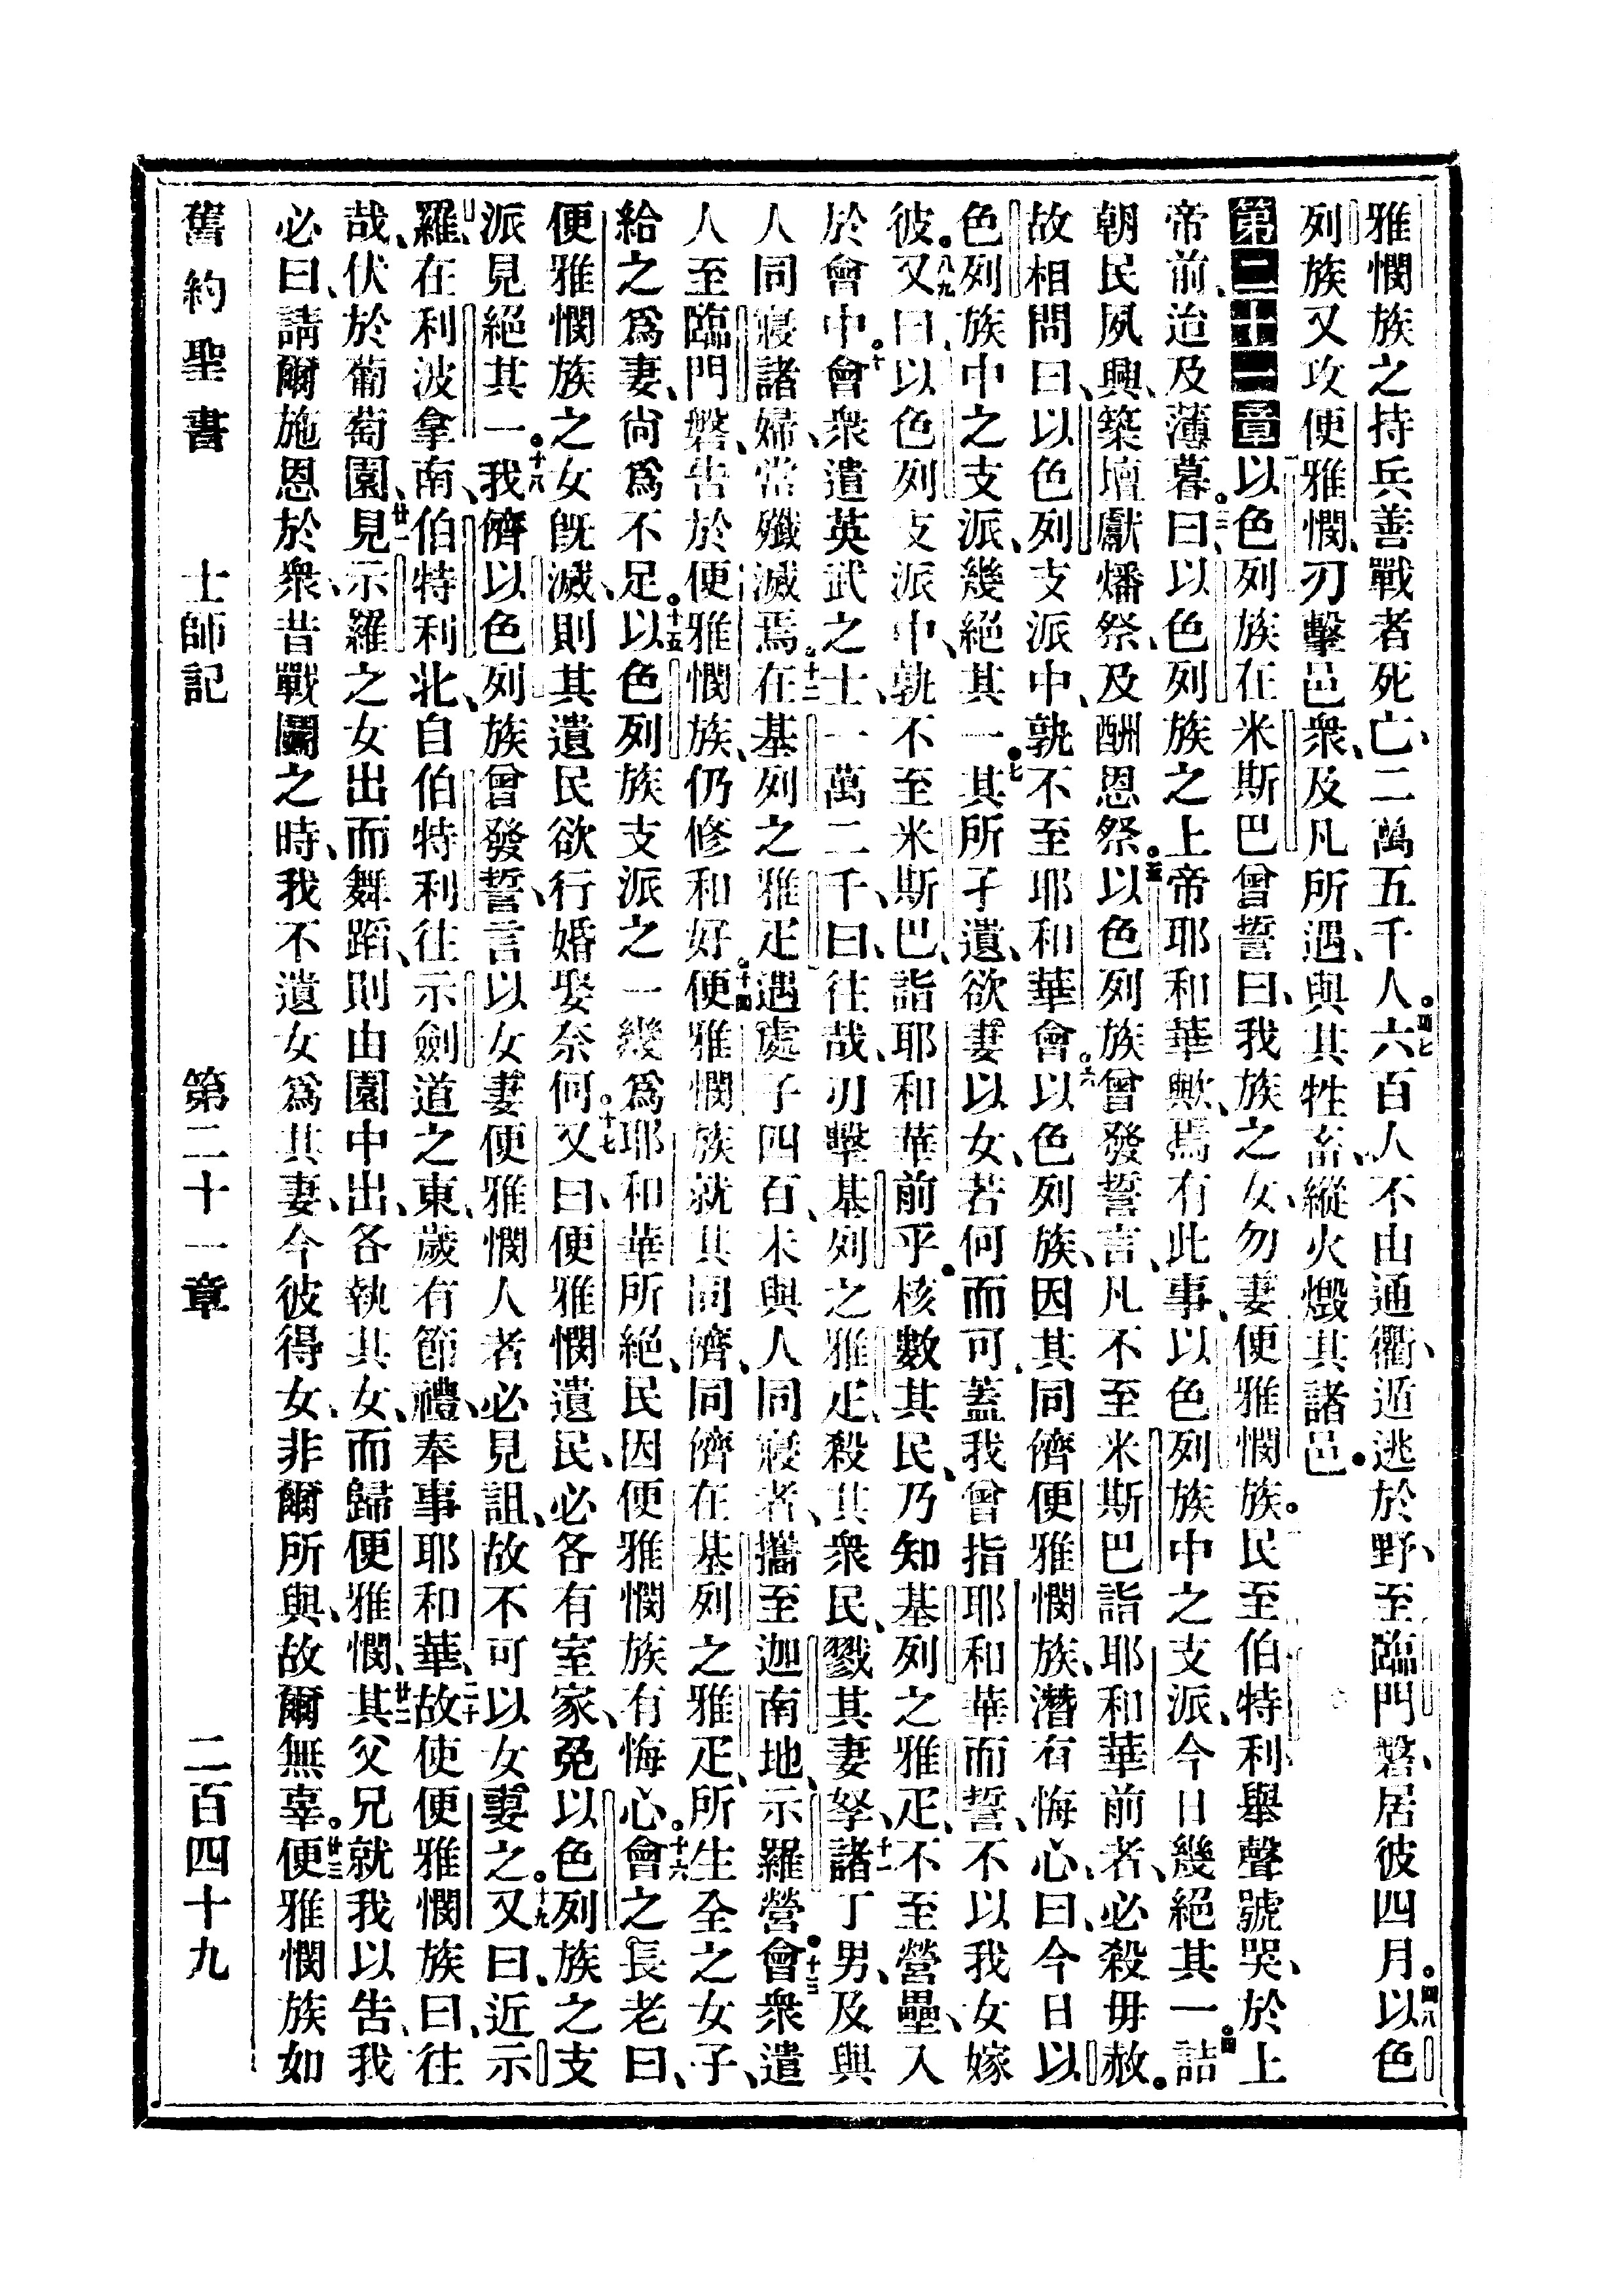 雅憫族之持兵善戰者死亡、二萬五千人。四七六百人不由通衢、遁逃於野、至臨門磐、居彼四月。四八以色
列族又攻便雅憫、刃擊邑衆、及凡所遇、與其牲畜、縱火燬其諸邑。
第二十一章以色列族在米斯巴曾誓曰、我族之女、勿妻便雅憫族。民至伯特利舉聲號哭、於上
帝前、迨及薄暮。二三曰、以色列族之上帝耶和華歟、焉有此事、以色列族中之支派、今日幾絕其一。四詰
朝民夙興、築壇獻燔祭、及酬恩祭。五以色列族曾發誓言、凡不至米斯巴詣耶和華前者、必殺毋赦。
故相問曰、以色列支派中、孰不至耶和華會。六以色列族、因其同儕便雅憫族、潛有悔心、曰、今日以
色列族中之支派、幾絕其一。七其所孑遺、欲妻以女、若何而可、蓋我曾指耶和華而誓、不以我女嫁
彼。八九又曰、以色列支派中、孰不至米斯巴、詣耶和華前乎。核數其民、乃知基列之雅疋、不至營壘、入
於會中。十會衆遣英武之士、一萬二千、曰、往哉、刃擊基列之雅疋、殺其衆民、戮其妻孥、十一諸丁男、及與
人同寢諸婦、當殲滅焉。十二在基列之雅疋、遇處子四百、未與人同寢者、攜至迦南地、示羅營。十三會衆遣
人至臨門磐、告於便雅憫族、仍修和好。十四便雅憫族就其同儕、同儕在基列之雅疋、所生全之女子、
給之爲妻、尚爲不足。十五以色列族支派之一、幾爲耶和華所絕、民因便雅憫族有悔心。十六會之長老曰、
便雅憫族之女旣滅、則其遺民欲行婚娶奈何。十七又曰、便雅憫遺民、必各有室家、免以色列族之支
派見絕其一。十八我儕以色列族曾發誓言、以女妻便雅憫人者、必見詛、故不可以女妻之。十九又曰、近示
羅、在利波拿南、伯特利北、自伯特利往示劍道之東、歲有節禮、奉事耶和華、二十故使便雅憫族曰、往
哉、伏於葡萄園、廿一見示羅之女出而舞蹈、則由園中出、各執其女、而歸便雅憫、廿二其父兄就我以告、我
必曰、請爾施恩於衆、昔戰鬬之時、我不遺女爲其妻、今彼得女、非爾所與、故爾無辜。廿三便雅憫族如
舊約聖書　士師記　第二十一章　二百四十九